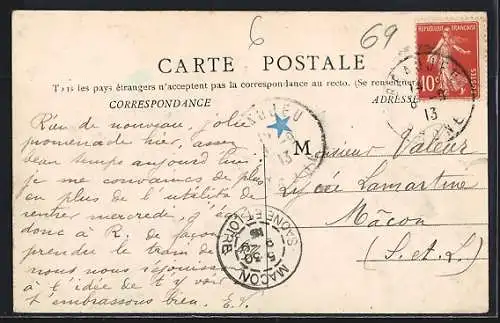 6
69
CARTE POSTALE
Tous les pays étrangers n'acceptent pas la correspondance au recto. (Se renseigner
CORRESPONDANCE
ADRESSE
RÉPUBLIQUE FRANÇAISE
10c
POSTES
BEAUJEU
13
BEAUJEU
13
RHONE
Rien de nouveau, jolie
promenade hier, assez
beau temps aujourd'hui
je me convaincs de plus
en plus de l'utilité de
rentrer mercredi,
donc à R. de façon
prendre le train de
nous nous réjouissons
à l'idée de t'y voir
t'embrassons bien. E.V.
Monsieur Valeur
Lycée Lamartine
Mâcon
(S.-et-L.)
MACON
5 30
SAONE-ET-LOIRE